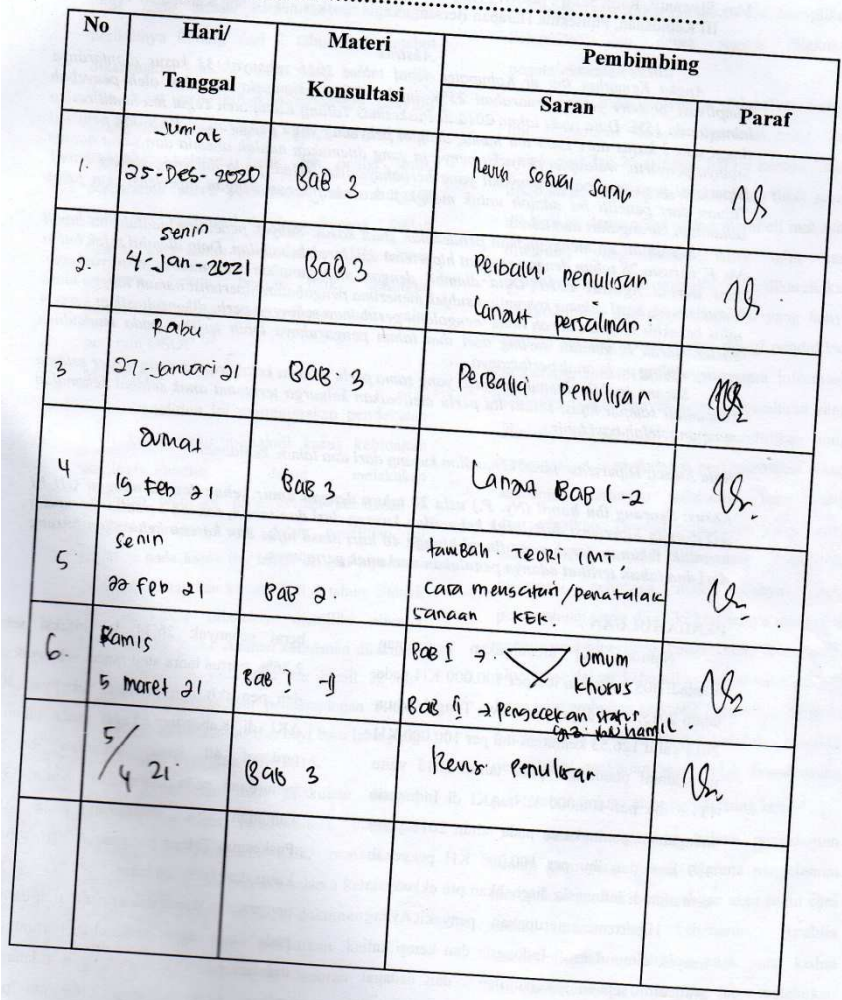 No
Hari/
Tanggal
Materi
Konsultasi
Pembimbing
Saran
Paraf
1.
Jum'at
25-Des-2020
BaB 3
Revisi sesuai saran
2.
senin
4-Jan-2021
BaB 3
Perbaiki penulisan
Lanjut persalinan.
3
Rabu
27-Januari 21
BAB 3
Perbaiki penulisan
4
Jumat
19 Feb 21
BaB 3
Lanjut BAB 1-2
5
Senin
22 Feb 21
BAB 2
tambah TEORI IMT,
Cara mengatasi/penatalak
sanaan KEK.
6.
Kamis
5 maret 21
BAB I - II
BAB I → Umum
khusus
BAB II → Pengecekan status
hamil
5/4 21
BAB 3
Revisi Penulisan